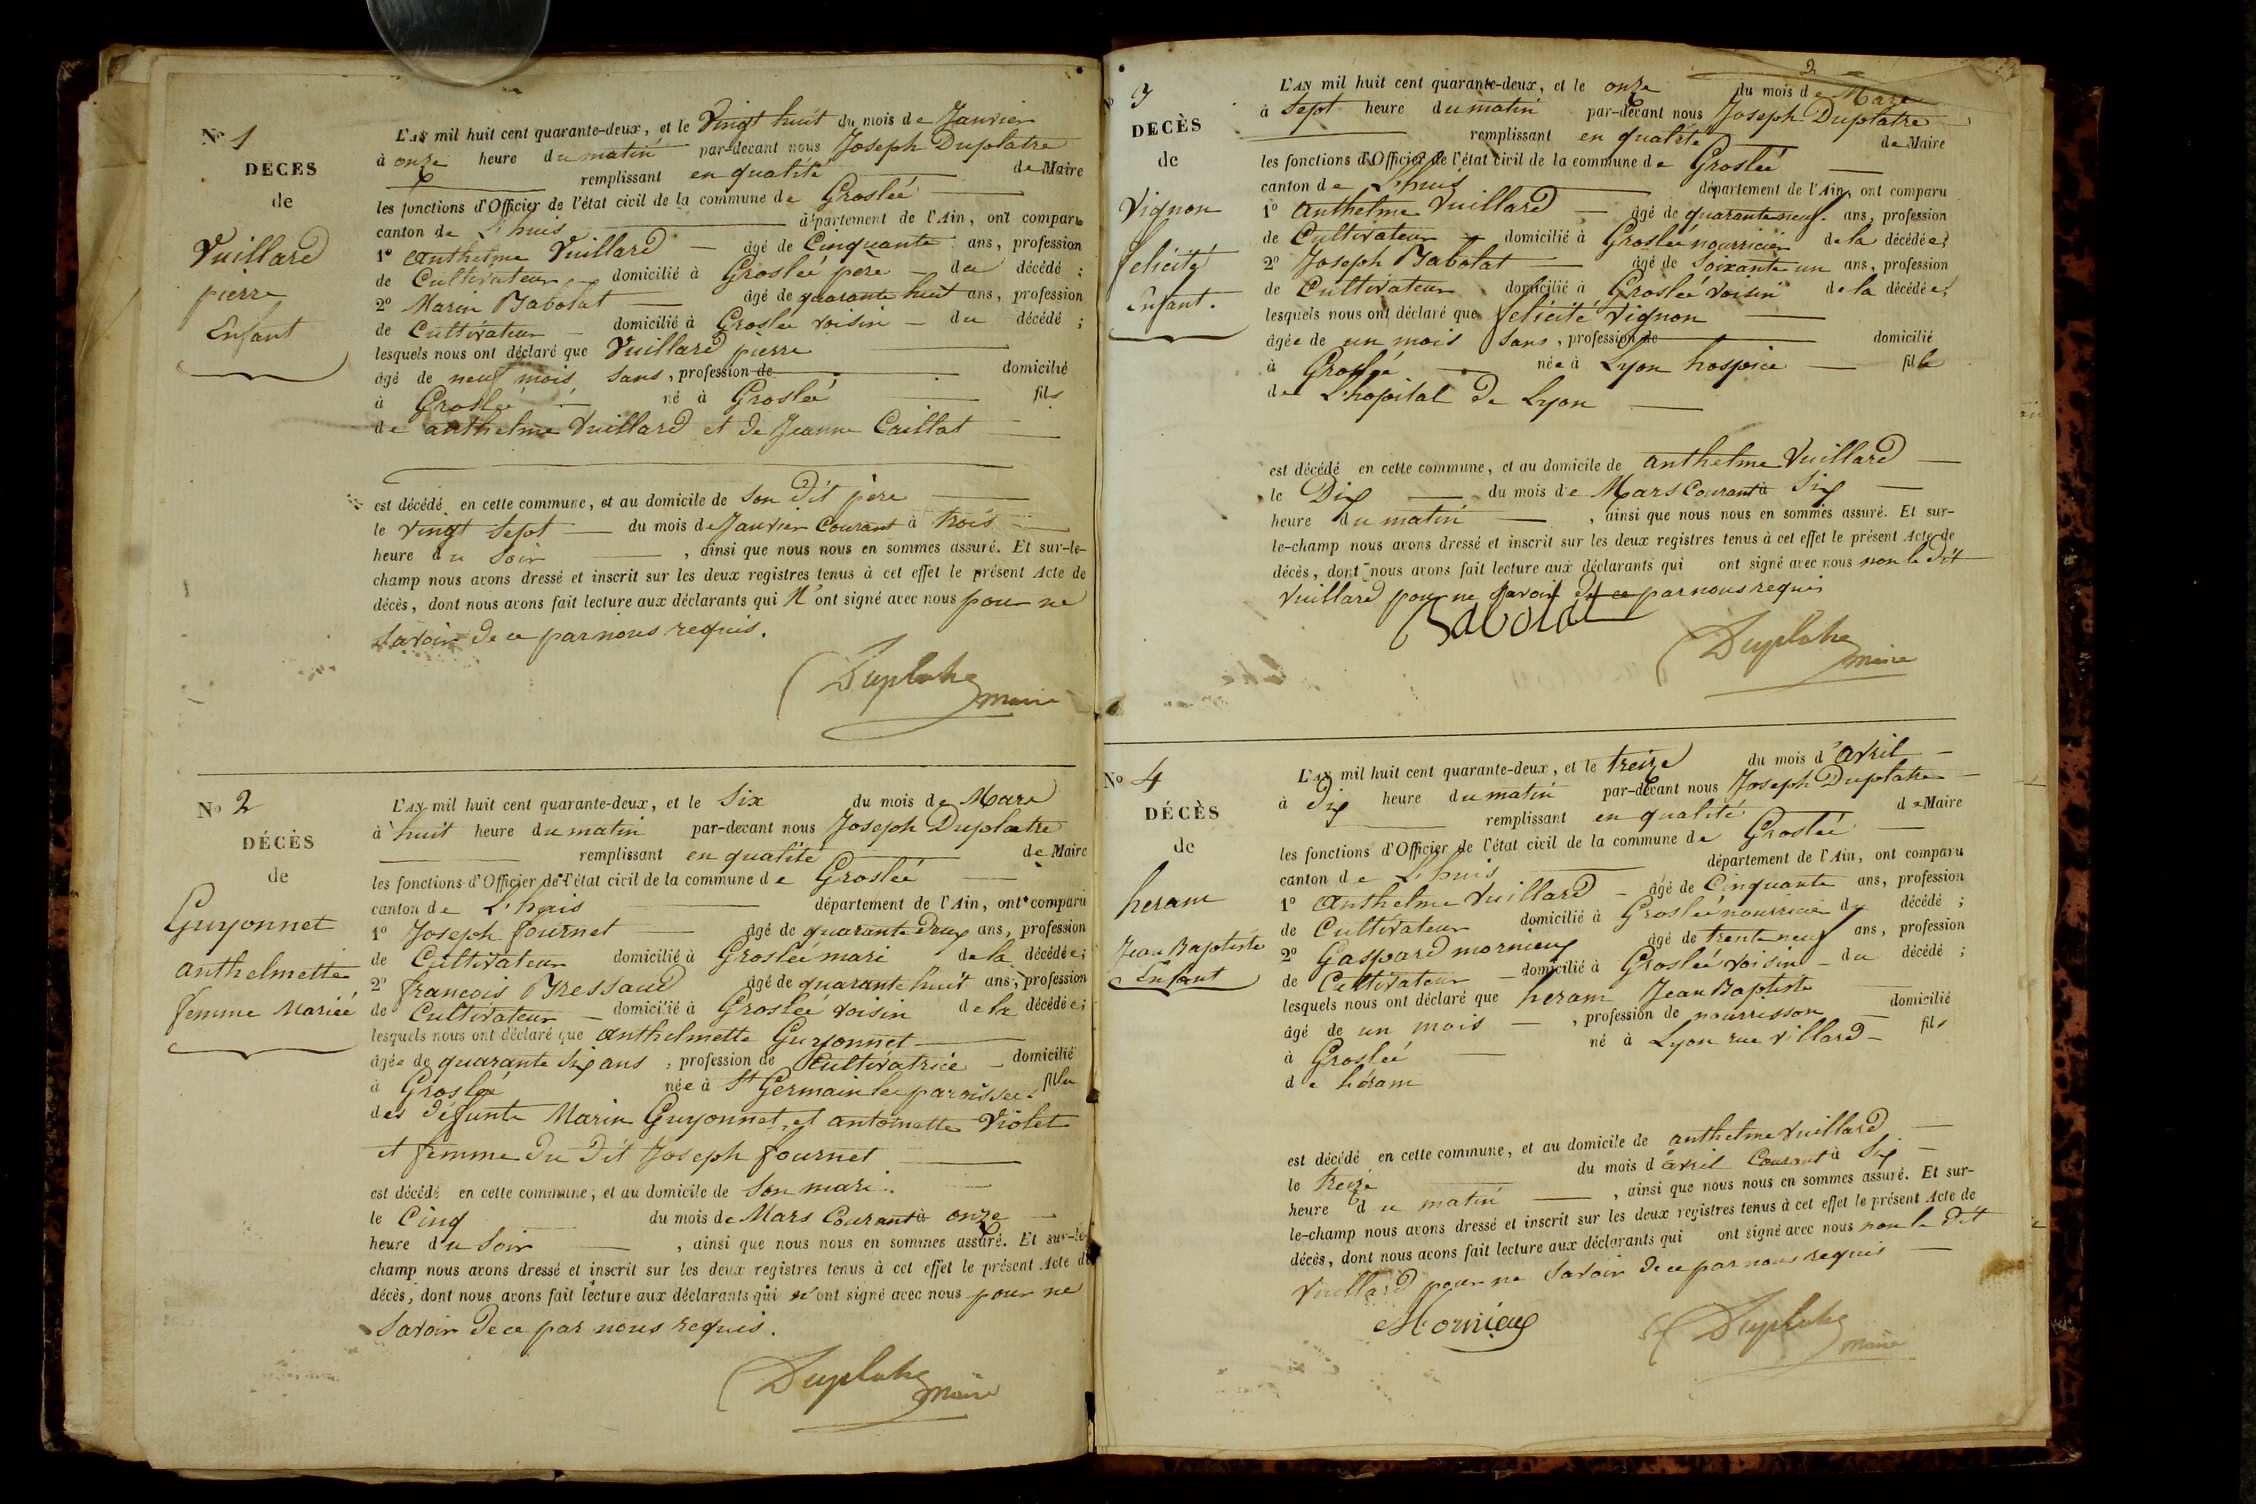 N° 1
DÉCÈS
de
Vuillard
pierre
Enfant
L'AN mil huit cent quarante-deux, et le Vingt huit du mois de Janvier
à onze heure du matin par-devant nous Joseph Duplatre
remplissant en qualité de Maire
les fonctions d'Officier de l'état civil de la commune de Groslée
canton de L'huis département de l'Ain, ont comparu
1° anthelme Vuillard âgé de Cinquante ans, profession
de Cultivateur domicilié à Groslée père du décédé ;
2° Marin Babolat âgé de quarante huit ans, profession
de Cultivateur domicilié à Groslée voisin du décédé ;
lesquels nous ont déclaré que Vuillard pierre
âgé de neuf mois, sans, profession de domicilié
à Groslée né à Groslée fils
de anthelme Vuillard et de Jeanne Caillat
est décédé en cette commune, et au domicile de Son dit père
le vingt Sept du mois de Janvier Courant à trois
heure du Soir , ainsi que nous nous en sommes assuré. Et sur-le-
champ nous avons dressé et inscrit sur les deux registres tenus à cet effet le présent Acte de
décès, dont nous avons fait lecture aux déclarants qui N'ont signé avec nous pour ne
Savoir de ce par nous requis.
Duplatre
maire
N° 2
DÉCÈS
de
Guyonnet
anthelmette
femme Mariée
L'AN mil huit cent quarante-deux, et le Six du mois de Mars
à huit heure du matin par-devant nous Joseph Duplatre
remplissant en qualité de Maire
les fonctions d'Officier de l'état civil de la commune de Groslée
canton de L'huis département de l'Ain, ont comparu
1° Joseph fournet âgé de quarante Deux ans, profession
de Cultivateur domicilié à Groslée mari de la décédée;
2° francois Bressaud âgé de quarante huit ans, profession
de Cultivateur domicilié à Groslée voisin de la décédée;
lesquels nous ont déclaré que anthelmette Guyonnet
âgée de quarante Six ans, profession de Cultivatrice domicilié
à Groslée née à St Germain les paroisses fille
des défunts Marin Guyonnet, et antoinette Violet
et femme du dit Joseph fournet
est décédé en cette commune, et au domicile de Son mari
le Cinq du mois de Mars Courant à onze
heure du Soir , ainsi que nous nous en sommes assuré. Et sur-le-
champ nous avons dressé et inscrit sur les deux registres tenus à cet effet le présent Acte de
décès, dont nous avons fait lecture aux déclarants qui n'ont signé avec nous pour ne
Savoir de ce par nous requis.
Duplatre
maire
2
N° 3
DÉCÈS
de
Vignon
felicité
Enfant.
L'AN mil huit cent quarante-deux, et le onze du mois de Mars
à Sept heure du matin par-devant nous Joseph Duplatre
remplissant en qualité de Maire
les fonctions d'Officier de l'état civil de la commune de Groslée
canton de L'huis département de l'Ain, ont comparu
1° anthelme Vuillard âgé de quarante neuf ans, profession
de Cultivateur domicilié à Groslée nourricier de la décédée;
2° Joseph Babolat âgé de Soixante un ans, profession
de Cultivateur domicilié à Groslée voisin de la décédée;
lesquels nous ont déclaré que felicité Vignon
âgée de un mois Sans, profession de domicilié
à Groslée née à Lyon hospice fille
de L'hopital de Lyon
est décédé en cette commune, et au domicile de anthelme Vuillard
le Dix du mois de Mars Courant à Six
heure du matin , ainsi que nous nous en sommes assuré. Et sur-
le-champ nous avons dressé et inscrit sur les deux registres tenus à cet effet le présent Acte de
décès, dont nous avons fait lecture aux déclarants qui ont signé avec nous non le dit
Vuillard pour ne Savoir de ce par nous requis
Babolat
Duplatre
maire
N° 4
DÉCÈS
de
heram
Jean Baptiste
Enfant
L'AN mil huit cent quarante-deux, et le treize du mois d'avril
à Dix heure du matin par-devant nous Joseph Duplatre
remplissant en qualité de Maire
les fonctions d'Officier de l'état civil de la commune de Groslée
canton de L'huis département de l'Ain, ont comparu
1° anthelme Vuillard âgé de Cinquante ans, profession
de Cultivateur domicilié à Groslée nourricier du décédé ;
2° Gaspard mornieux âgé de trente neuf ans, profession
de Cultivateur domicilié à Groslée voisin du décédé ;
lesquels nous ont déclaré que heram Jean Baptiste
âgé de un mois , profession de nourrisson domicilié
à Groslée né à Lyon rue Villard fils
de héram
est décédé en cette commune, et au domicile de anthelme Vuillard
le treize du mois d'avril Courant à Six
heure du matin , ainsi que nous nous en sommes assuré. Et sur-
le-champ nous avons dressé et inscrit sur les deux registres tenus à cet effet le présent Acte de
décès, dont nous avons fait lecture aux déclarants qui ont signé avec nous non le dit
Vuillard pour ne Savoir de ce par nous requis
Mornieux
Duplatre
maire